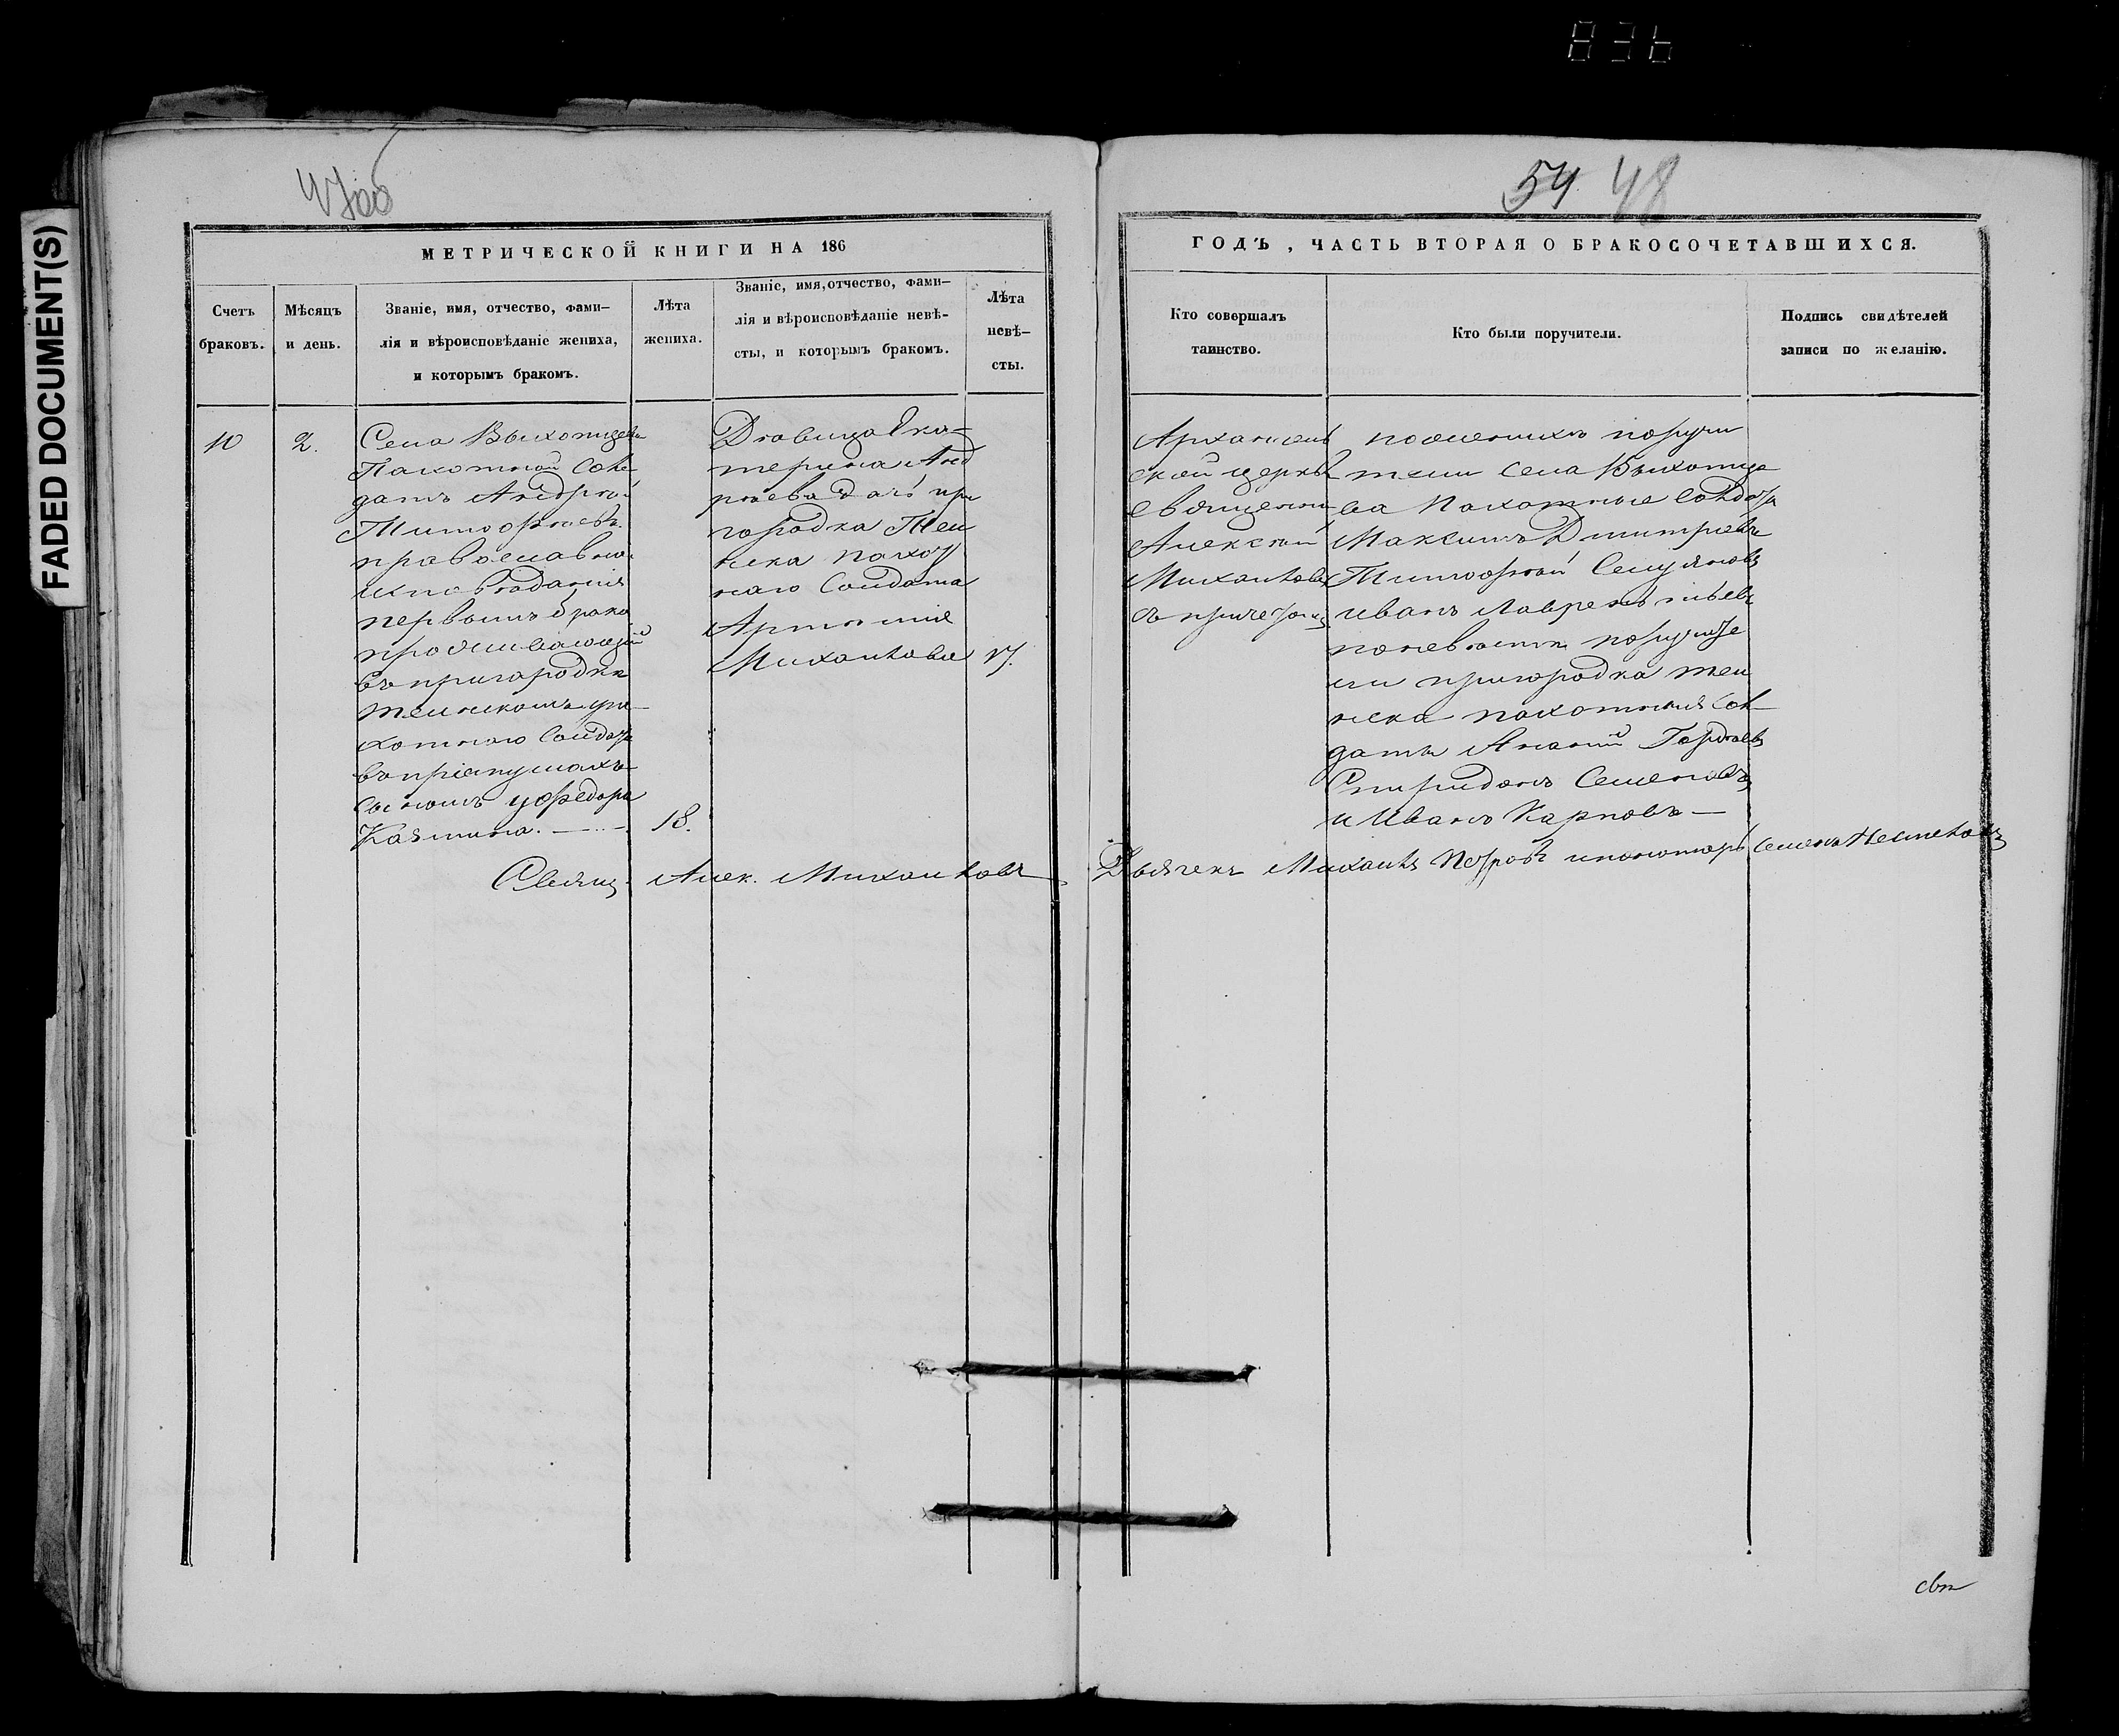 836
FADED DOCUMENT(S)
47об
54 48
МЕТРИЧЕСКОЙ КНИГИ НА 186
ГОДЪ, ЧАСТЬ ВТОРАЯ О БРАКОСОЧЕТАВШИХСЯ.
Счетъ
браковъ.
Мѣсяцъ
и день.
Званіе, имя, отчество, фами-
лія и вѣроисповѣданіе жениха,
и которымъ бракомъ.
Лѣта
жениха.
Званіе, имя, отчество, фами-
лія и вѣроисповѣданіе невѣ-
сты, и которымъ бракомъ.
Лѣта
невѣ-
сты.
Кто совершалъ
таинство.
Кто были поручители.
Подпись свидѣтелей
записи по желанію.
10
2.
Села
Пахотной Сол
датъ Андрей
Тимофѣевъ
православнаго
первымъ брако
проживающій
въ пригородкѣ
хотнаго Солдата
въ пріпущахъ
сыномъ у Федора
18.
Дѣвица Ека-
терина Анд
реева дочь при
городка Тіи
нска пахот
наго Солдата
Артемія
Михайлова
17.
Архангель
ской церкви
Священни
Алексѣй
Михайловъ
съ причетом
по женихѣ поручи
тели Села
ва Пахотные Солдаты
Максимъ Дмитріевъ
Тимофей
Иванъ Лаврентьевъ
по невѣстѣ поручите
ли пригородка Тіи
нска пахотныя Сол
даты Ананій Гордѣевъ
Спиридонъ Семеновъ
и Иванъ Карповъ —
Свящ. Алек. Михайловъ
Дьячекъ Михаилъ Петровъ пономарь Семенъ